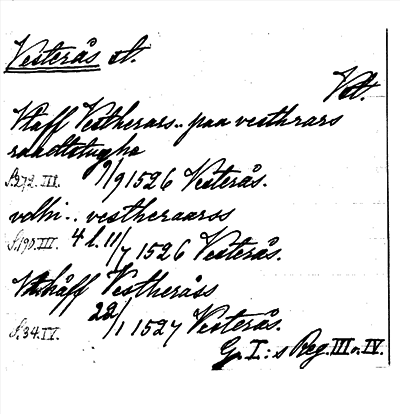 Vesterås st.
Vstl.
Vtaff Vestherars.. paa vesthrars
raadtstugho
S. 272. III. 9/9 1526 Vesterås.
vdhi.. vestheraarss
S. 190. III. 4 l. 11/7 1526 Vesterås.
Vthåff Vestheråss
S. 34. IV. 22/1 1527 Vesterås.
G. I:s Reg. III o. IV.